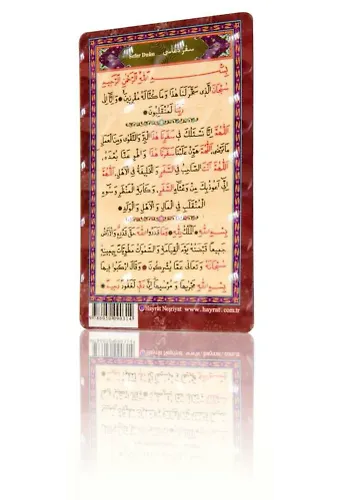 سفر دعاسی
Sefer Duâsı
بِسْمِ اللهِ الرَّحْمٰنِ الرَّحِيمِ
سُبْحَانَ الَّذِى سَخَّرَ لَنَا هٰذَا وَمَا كُنَّا لَهُ مُقْرِنِينَ وَإِنَّا إِلٰى
رَبِّنَا لَمُنْقَلِبُونَ
اَللّٰهُمَّ إِنَّا نَسْئَلُكَ فِى سَفَرِنَا هٰذَا الْبِرَّ وَالتَّقْوٰى وَمِنَ الْعَمَلِ
مَا تَرْضٰى اَللّٰهُمَّ هَوِّنْ عَلَيْنَا سَفَرَنَا هٰذَا وَاطْوِ عَنَّا بُعْدَهُ
اَللّٰهُمَّ أَنْتَ الصَّاحِبُ فِى السَّفَرِ وَالْخَلِيفَةُ فِى الْأَهْلِ اَللّٰهُمَّ
إِنِّى أَعُوذُ بِكَ مِنْ وَعْثَاءِ السَّفَرِ وَكَاٰبَةِ الْمَنْظَرِ وَسُوءِ
الْمُنْقَلَبِ فِى الْمَالِ وَالْأَهْلِ وَالْوَلَدِ
بِسْمِ اللهِ وَمَا قَدَرُوا اللهَ حَقَّ قَدْرِهِ وَالْأَرْضُ
جَمِيعًا قَبْضَتُهُ يَوْمَ الْقِيٰمَةِ وَالسَّمٰوَاتُ مَطْوِيَّاتٌ بِيَمِينِهِ
سُبْحَانَهُ وَتَعَالٰى عَمَّا يُشْرِكُونَ وَقَالَ ارْكَبُوا فِيهَا
بِسْمِ اللهِ مَجْرٰيهَا وَمُرْسٰيهَا إِنَّ رَبِّى لَغَفُورٌ رَحِيمٌ
Hayrât Neşriyat www.hayrat.com.tr